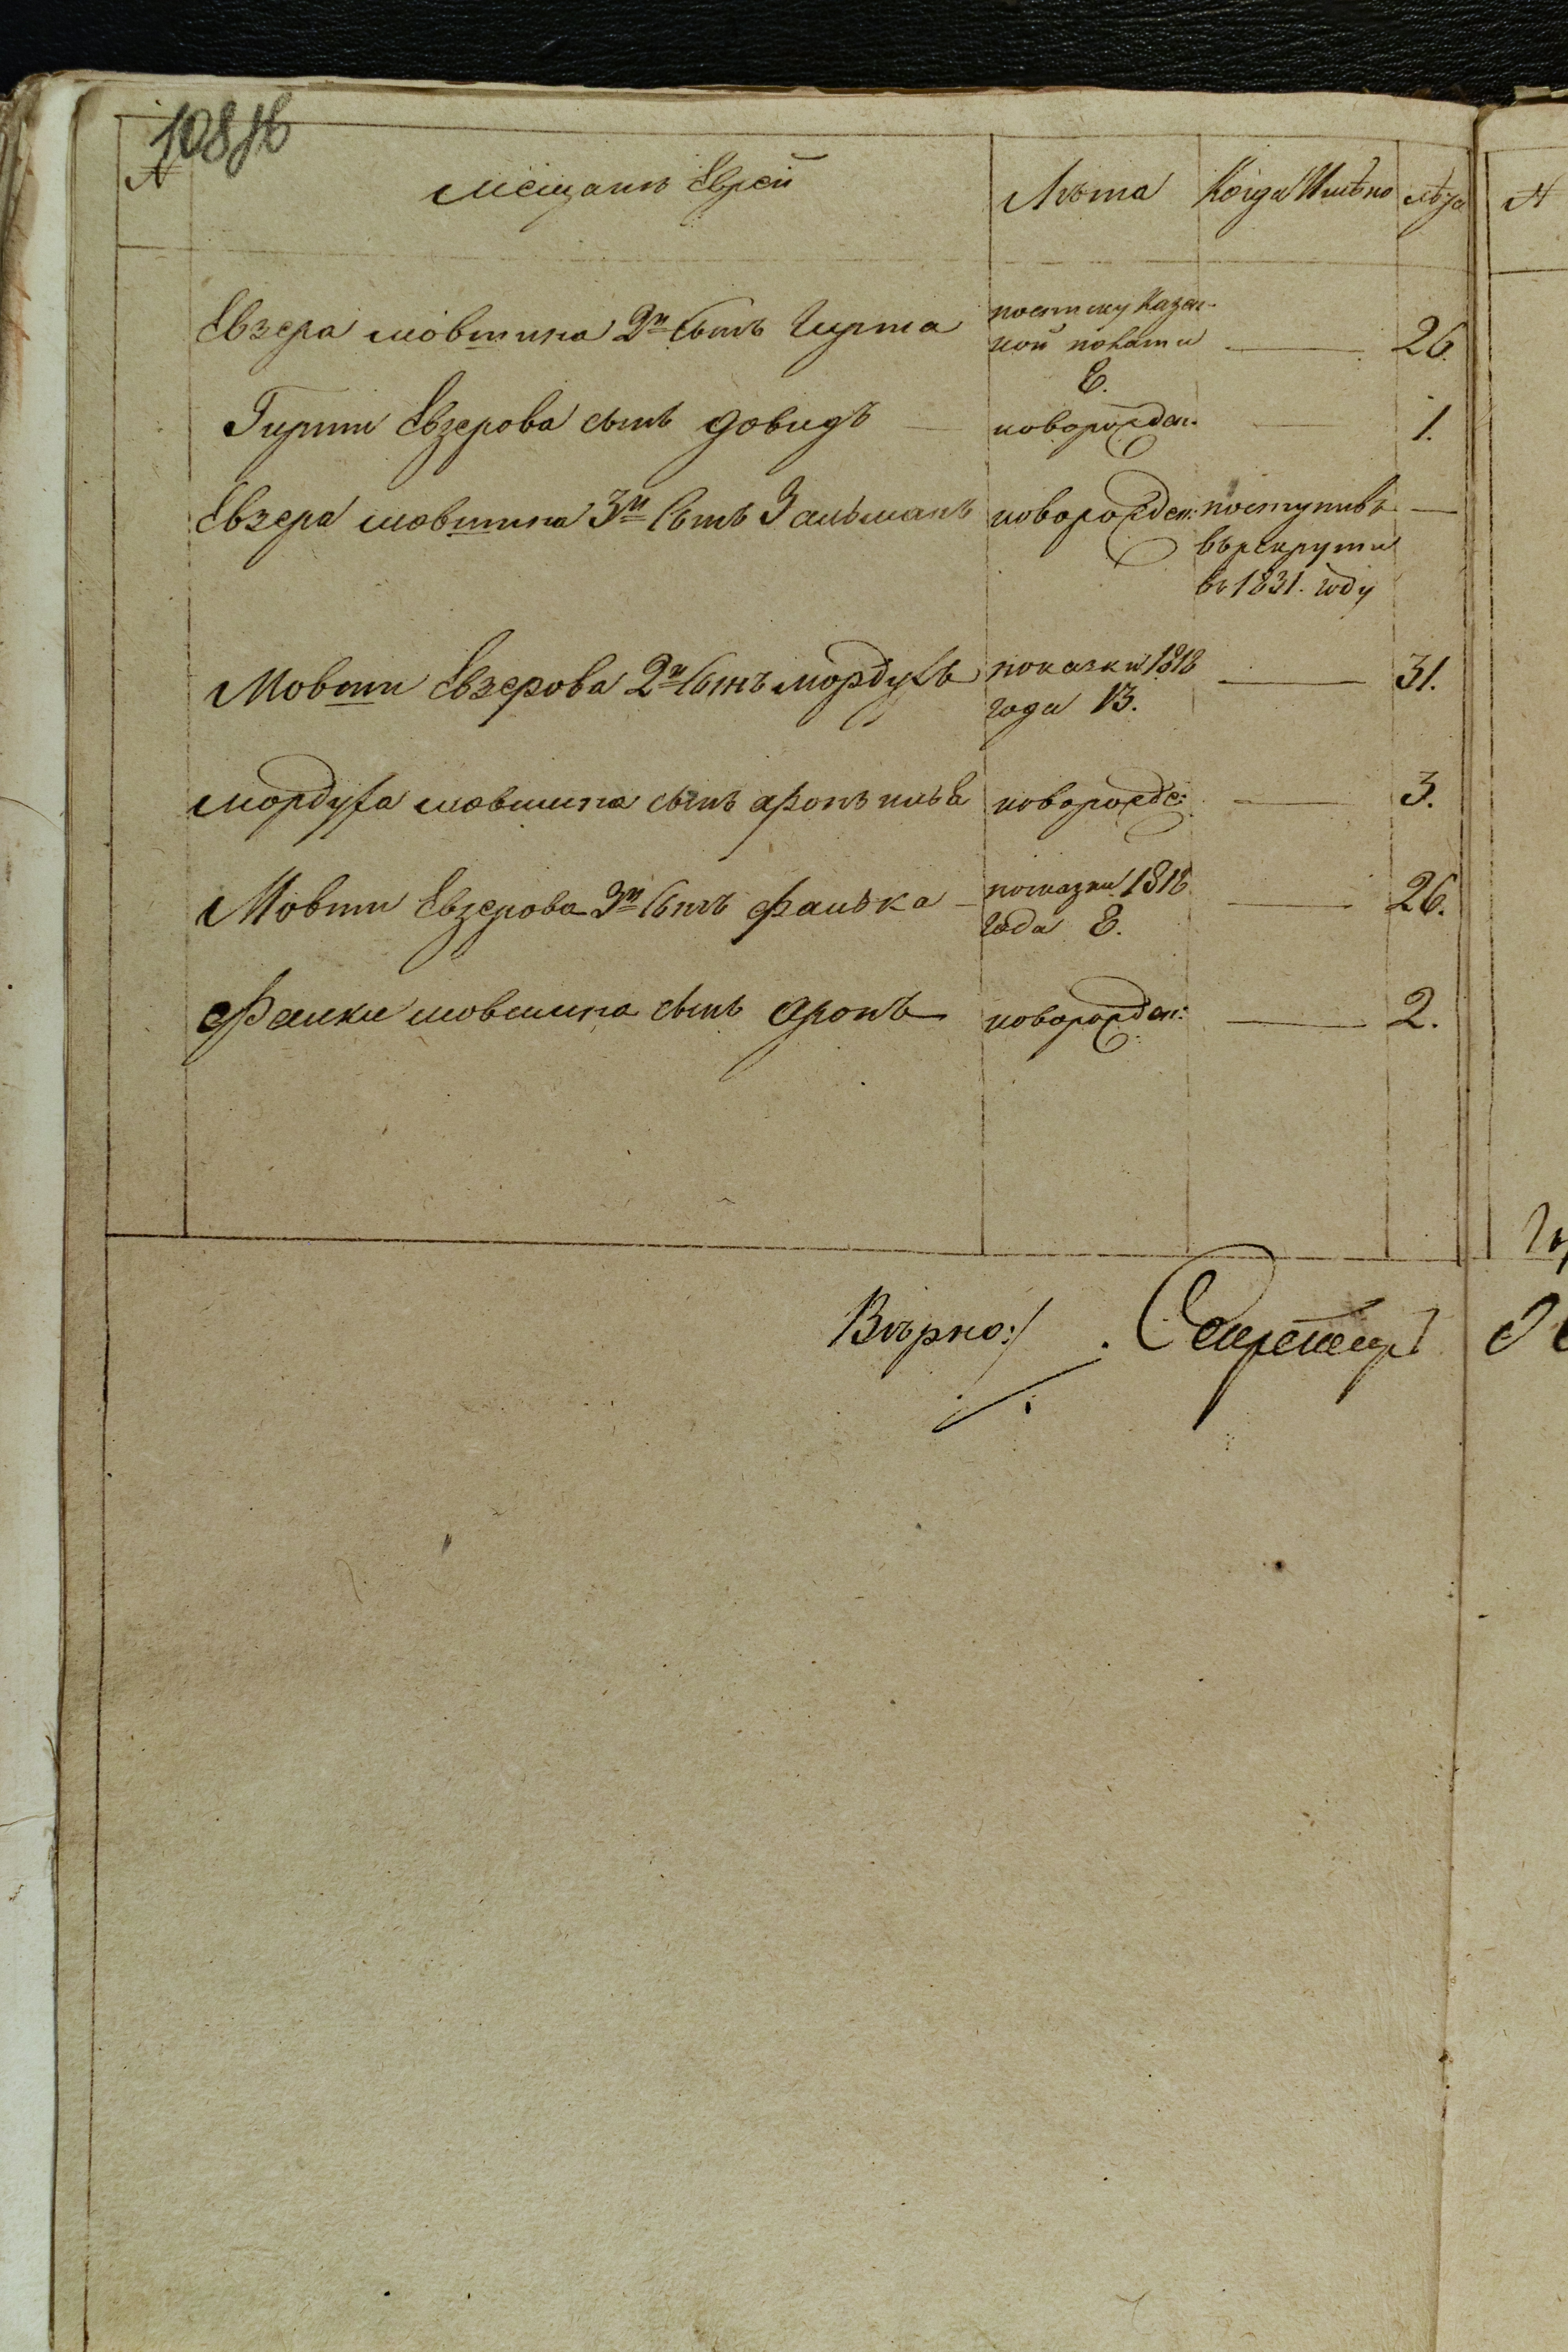 108 об
№ Мещанъ Еврей Лѣта Когда Имѣно лѣта
Евзера мовшина 2й Сынъ Гирша
посписку Казен-
ной полаты
8. 26.
Гирши Евзерова сынъ довидъ новорожден. 1.
Евзера мовшина 3й Сынъ Зальманъ новорожден: поступивъ
врекруты
въ 1831. году
Мовши Евзерова 2й Сынъ мордухъ посказки 1818 31.
года 13.
мордуха мовшина сынъ аронъ новорожде: 3.
Мовши Евзерова 3й Сынъ фалька посказки 1818 26.
года 8.
Фалки мовшина сынъ аронъ новорожден: 2.
Вѣрно:/ Секретарь